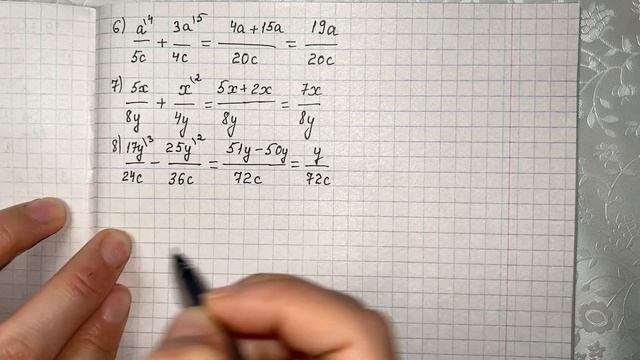 6) a\4/5c + 3a\5/4c = 4a+15a/20c = 19a/20c
7) 5x/8y + x\2/4y = 5x+2x/8y = 7x/8y
8) 17y\3/24c - 25y\2/36c = 51y-50y/72c = y/72c